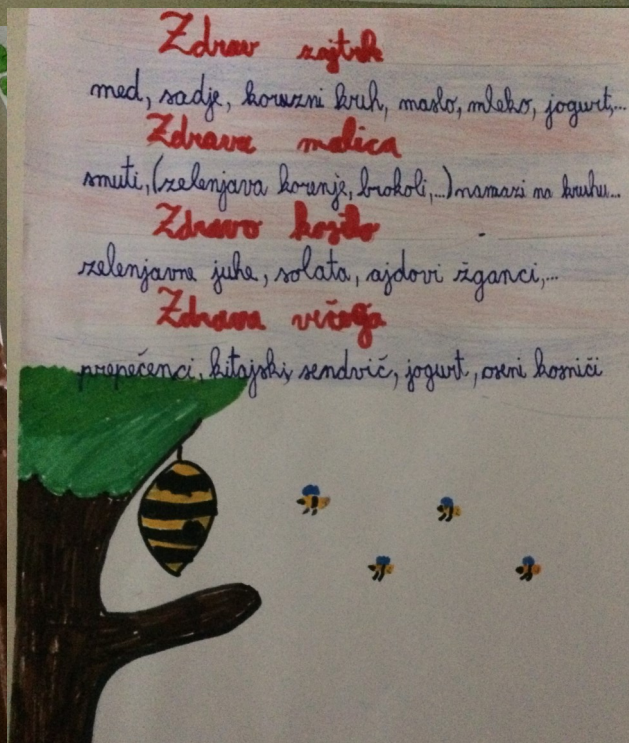 Zdrav zajtrk
med, sadje, koruzni kruh, maslo, mleko, jogurt,...
Zdrava malica
smuti, (zelenjava korenje, brokoli,...) namazi na kruhu...
Zdravo kosilo
zelenjavne juhe, solata, ajdovi žganci,...
Zdrava večerja
prepečenci, kitajski sendvič, jogurt, oseni kosmiči